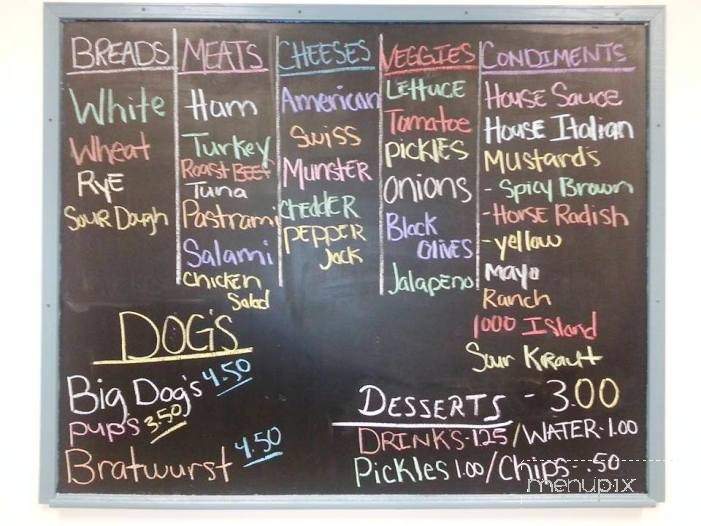 BREADS
White
Wheat
RyE
SouR Dough
MEATS
Ham
Turkey
Roast BEEF
Tuna
Pastrami
Salami
Chicken
Salad
CHEESES
American
Swiss
Munster
Chedder
PEPPER
Jack
VEGGIES
LETTUCE
Tomatoe
PICKLES
Onions
Black
OlIVES
Jalapeno
CONDIMENTS
House Sauce
House Italian
Mustard's
- Spicy Brown
- Horse Radish
- yellow
Mayo
Ranch
1000 Island
Sour Kraut
DOG'S
Big Dog's 4.50
pup's 3.50
Bratwurst 4.50
DESSERTS - 3.00
DRINKS · 1.25 / WATER · 1.00
Pickles 1.00 / Chips - .50
menupix